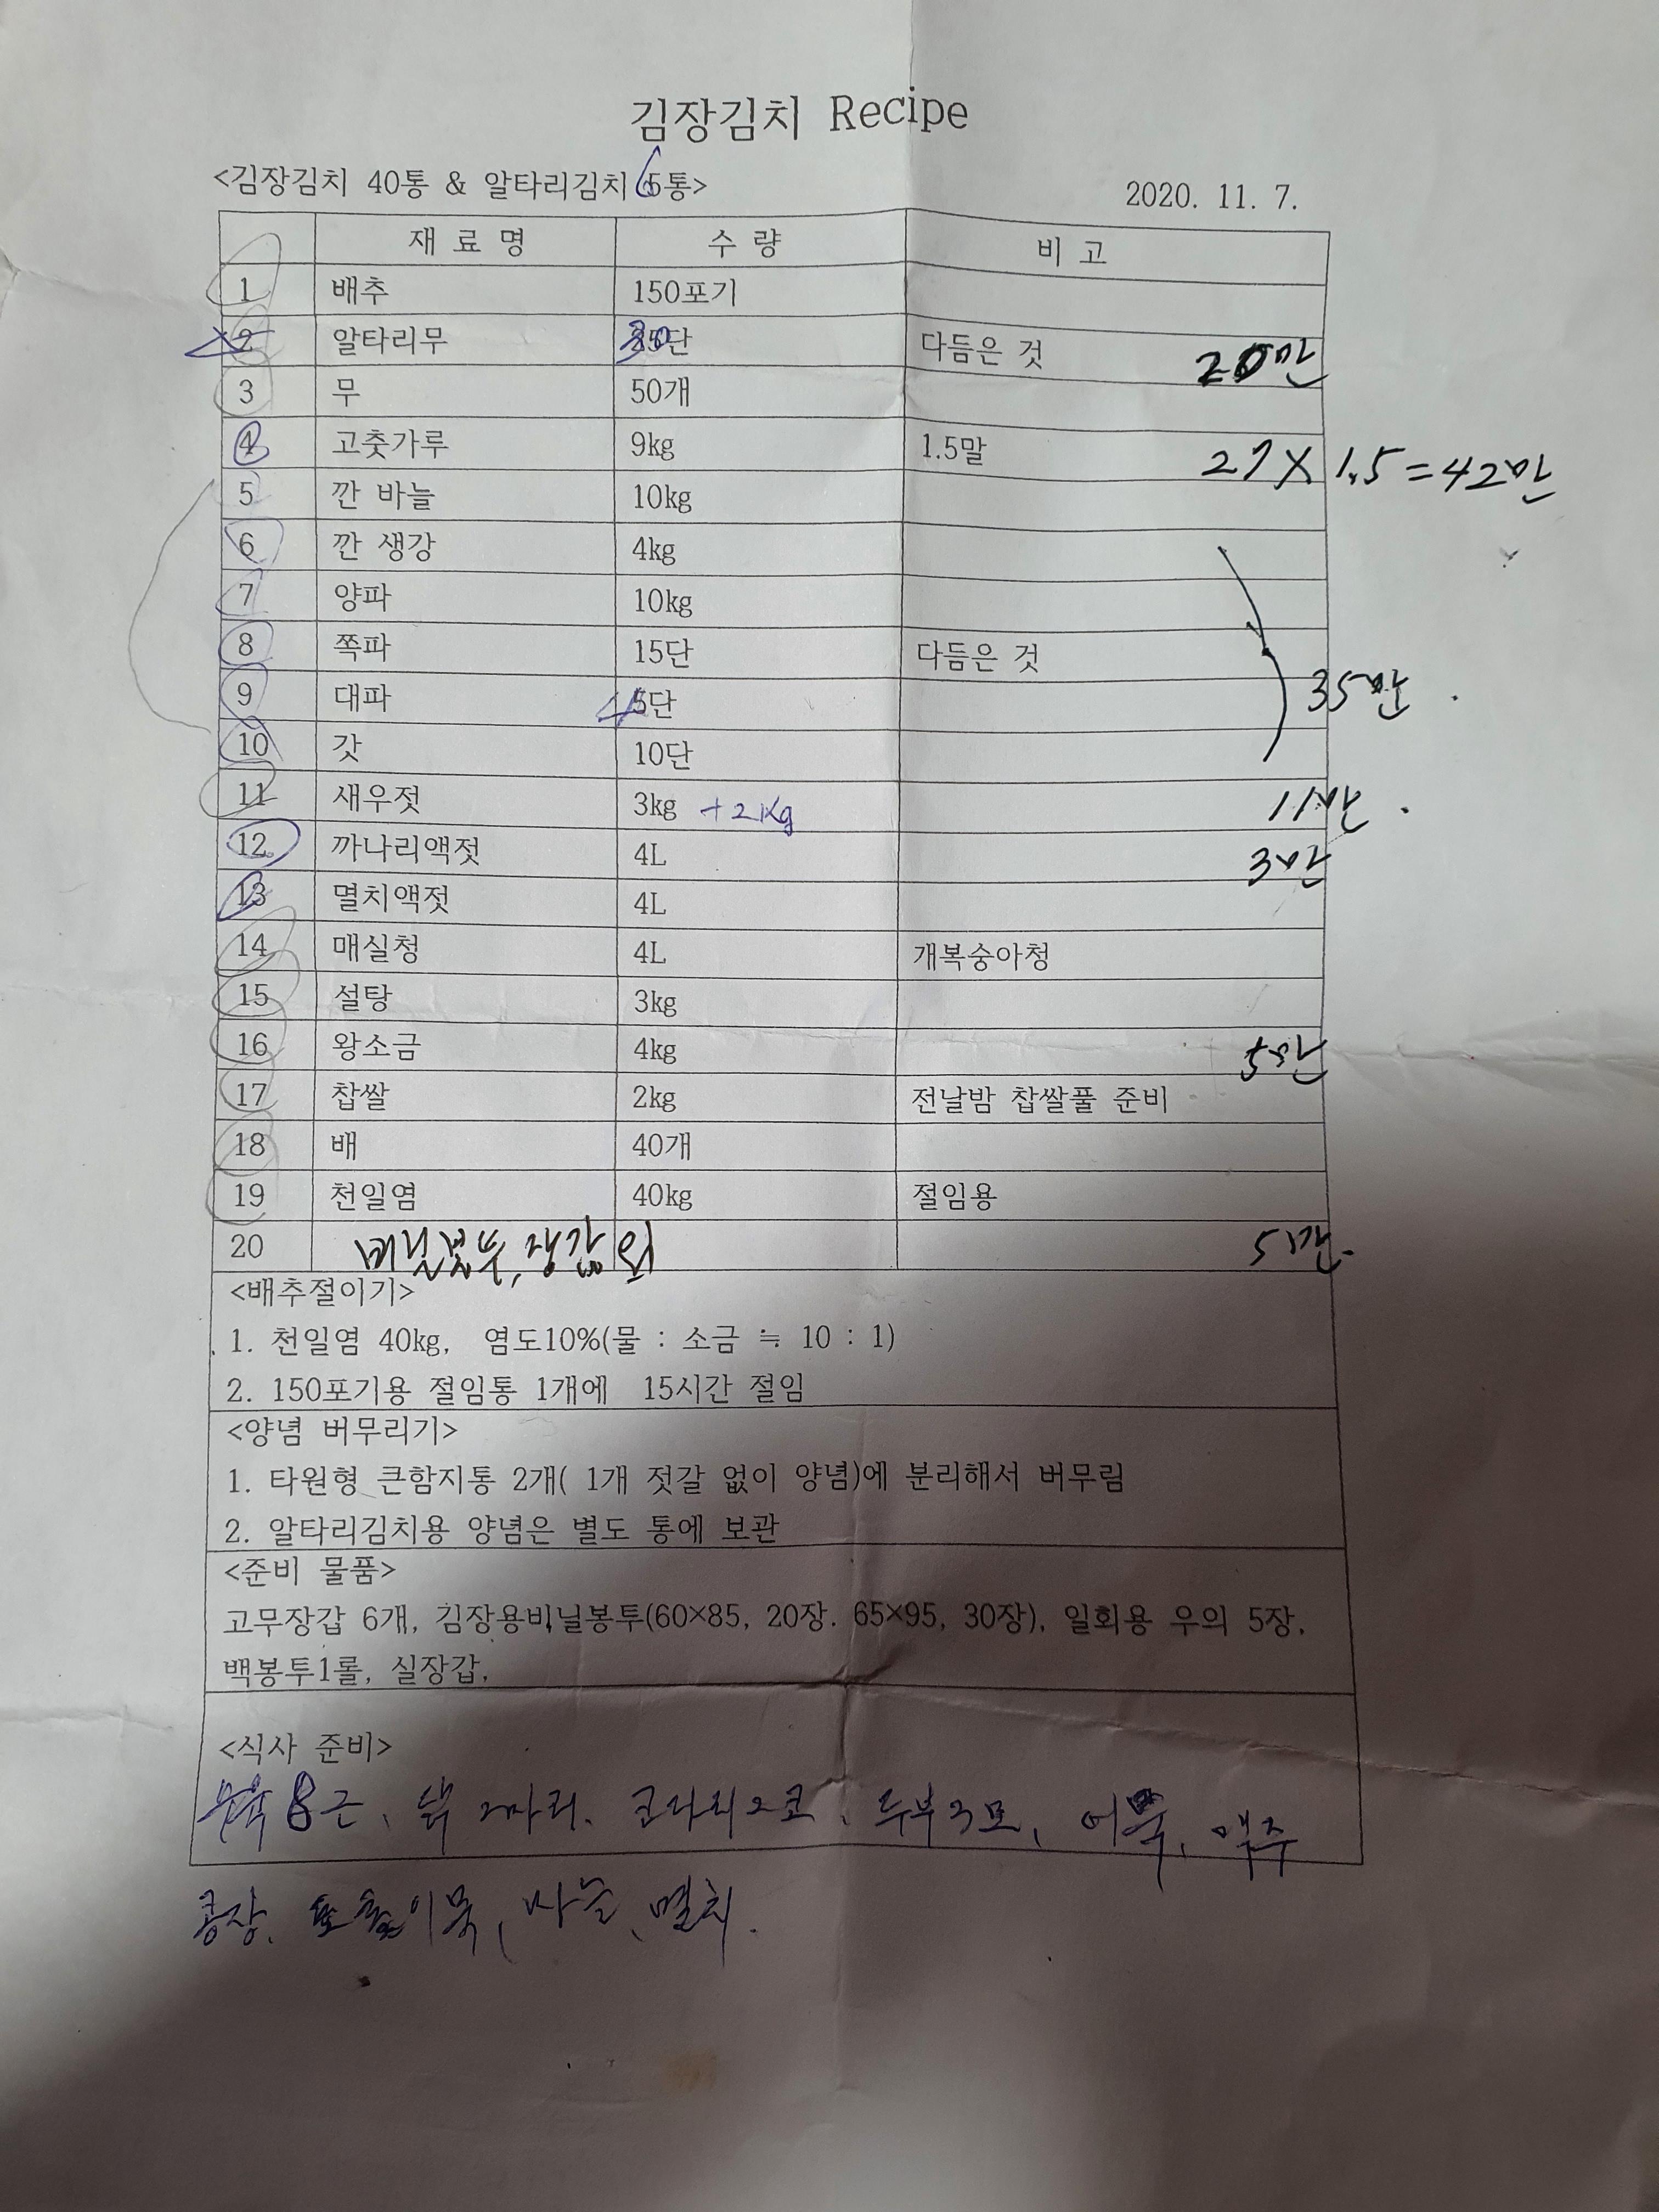 김장김치 Recipe
<김장김치 40통 & 알타리김치 6통>
2020. 11. 7.
재 료 명 수 량 비 고
1 배추 150포기
2 알타리무 30단 다듬은 것 20만
3 무 50개
4 고춧가루 9kg 1.5말 27 X 1.5 = 42만
5 깐 바늘 10kg
6 깐 생강 4kg
7 양파 10kg
8 쪽파 15단 다듬은 것
9 대파 5단 35만
10 갓 10단
11 새우젓 3kg +2kg 11만
12 까나리액젓 4L 3만
13 멸치액젓 4L
14 매실청 4L 개복숭아청
15 설탕 3kg
16 왕소금 4kg 5만
17 찹쌀 2kg 전날밤 찹쌀풀 준비
18 배 40개
19 천일염 40kg 절임용
20 비닐봉투, 장갑 외 5만
<배추절이기>
1. 천일염 40kg, 염도10%(물 : 소금 ≒ 10 : 1)
2. 150포기용 절임통 1개에 15시간 절임
<양념 버무리기>
1. 타원형 큰함지통 2개( 1개 젓갈 없이 양념)에 분리해서 버무림
2. 알타리김치용 양념은 별도 통에 보관
<준비 물품>
고무장갑 6개, 김장용비닐봉투(60×85, 20장. 65×95, 30장), 일회용 우의 5장,
백봉투1롤, 실장갑,
<식사 준비>
8근, 닭 2마리, 코다리2코, 두부3모, 어묵, 맥주
콩장, 마늘, 멸치.